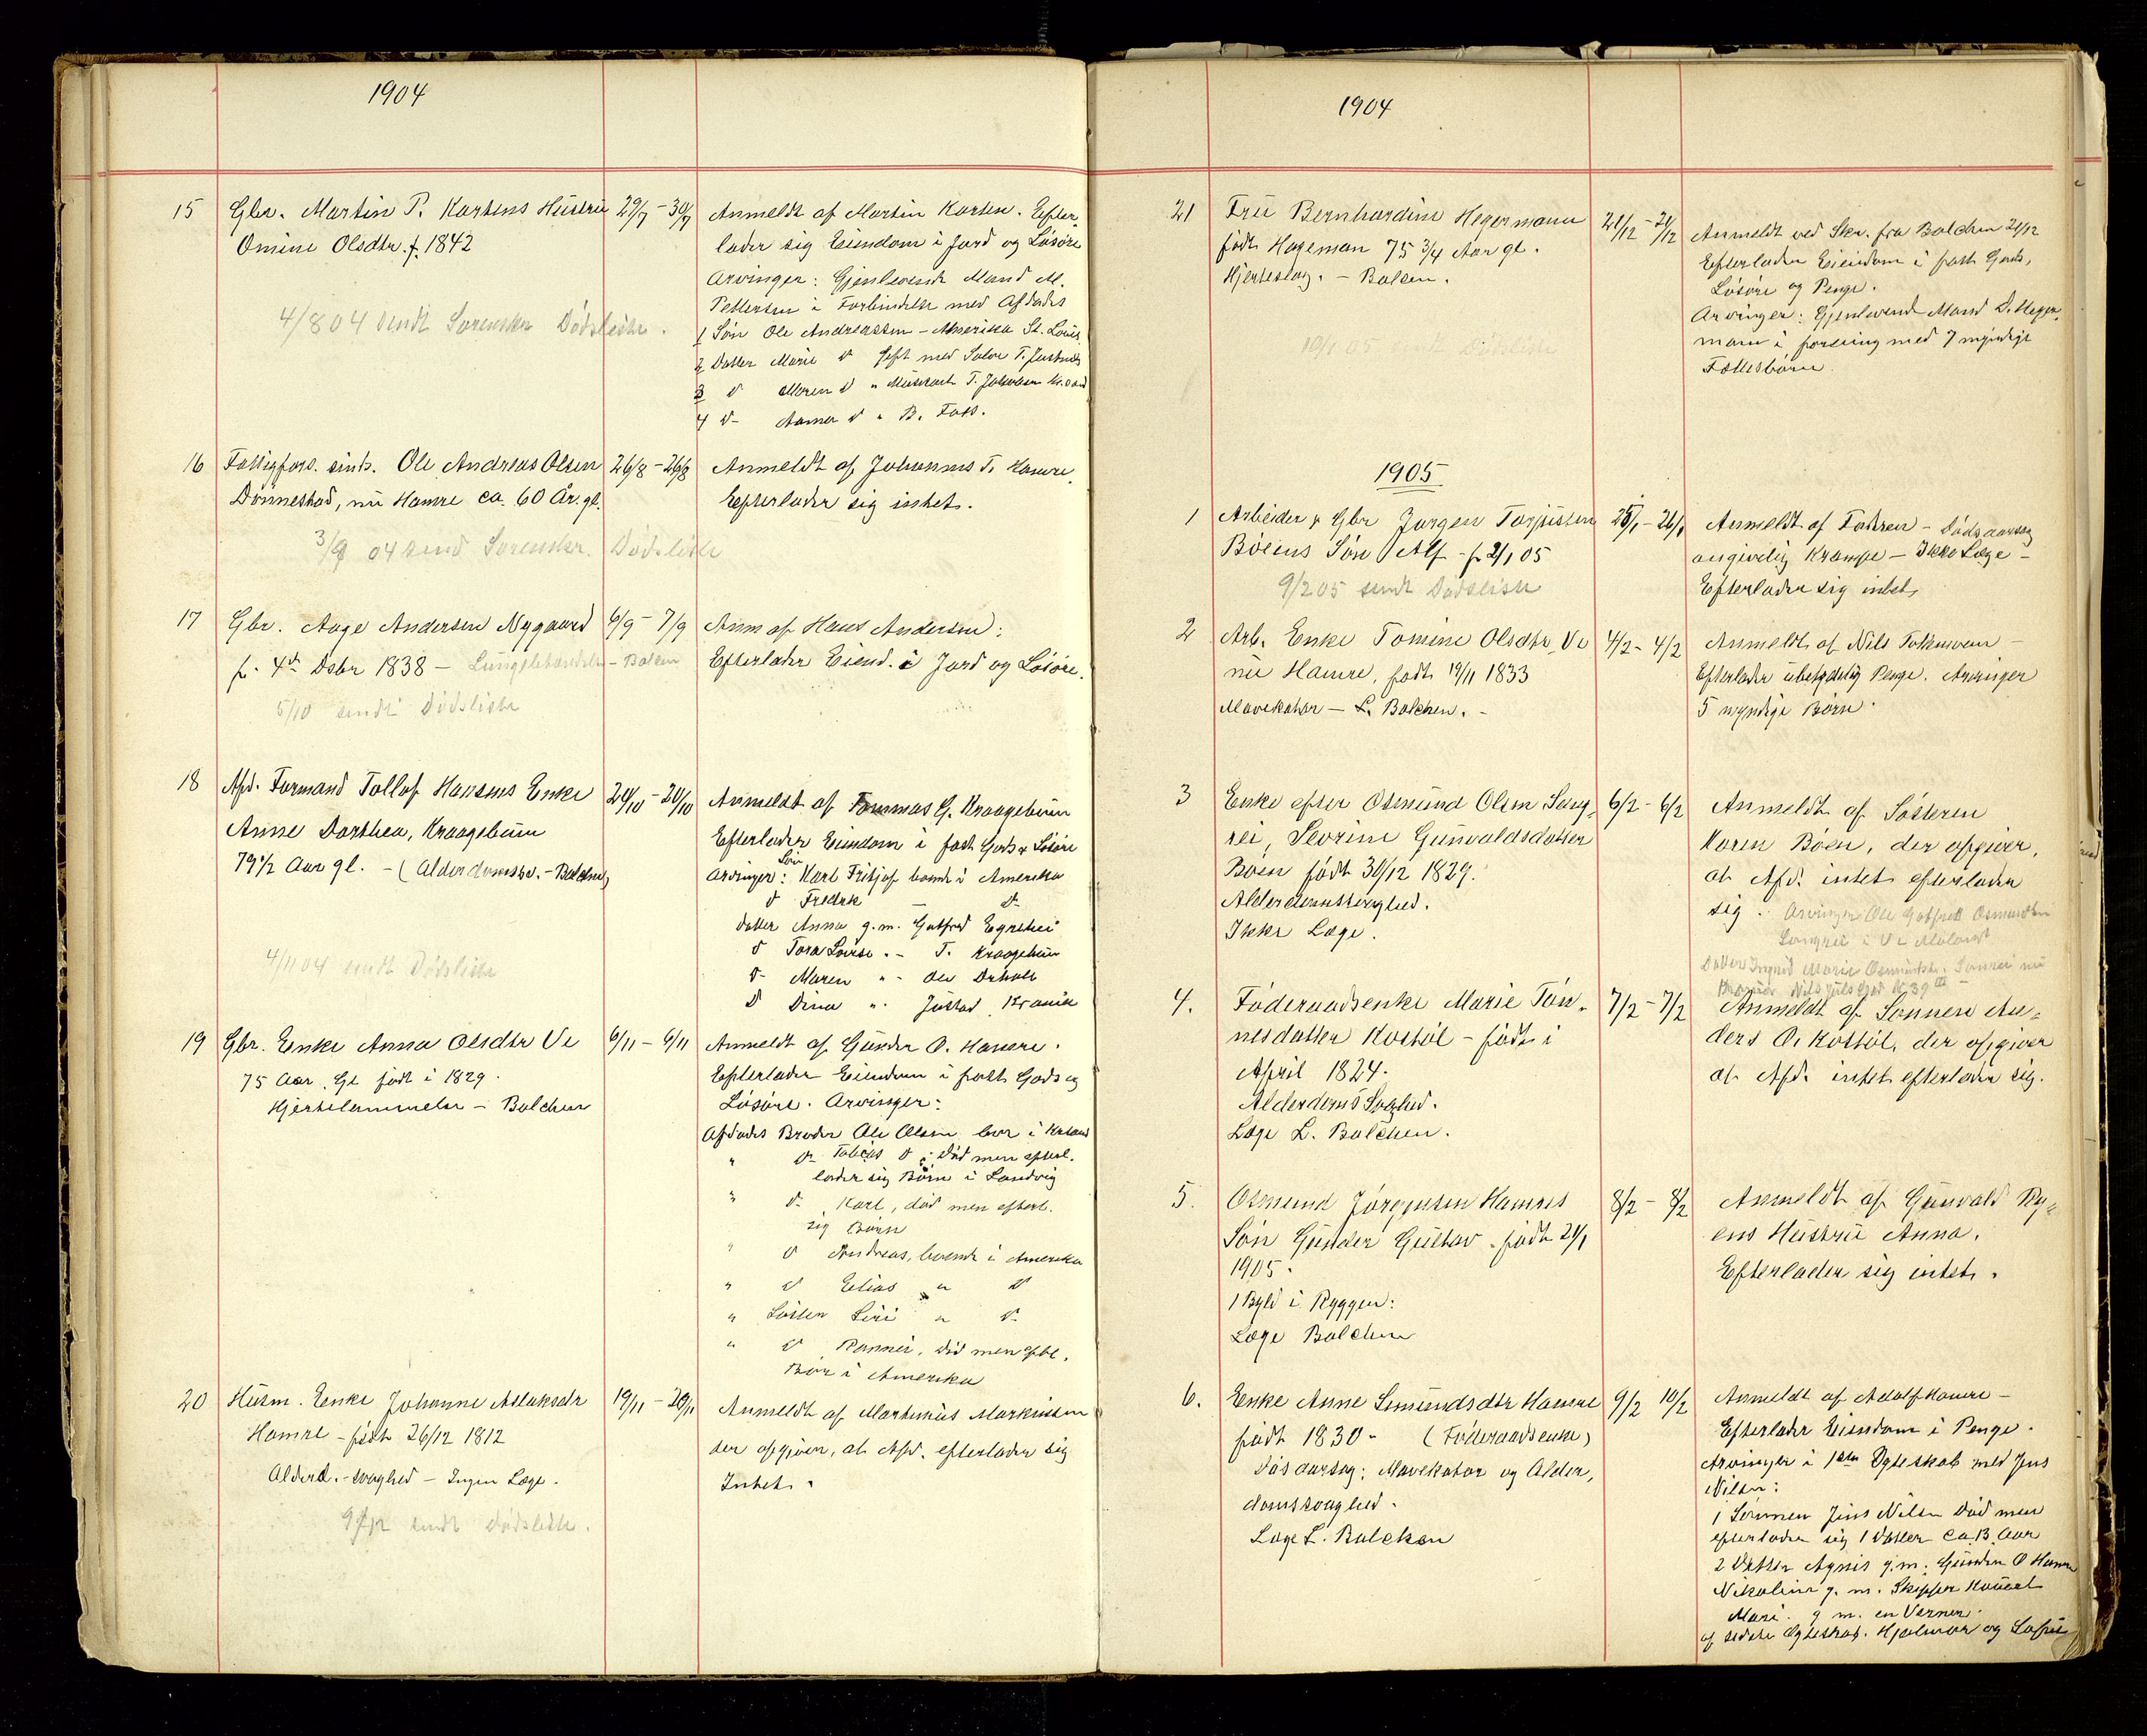 1904
15 Gbr. Martin P. Kartens Hustru 29/7 - 30/7 Anmeldt af Martin Karten. Efter
Omine Olsdtr. f. 1842 lader sig Eiendom i Jord og Løsøre
Arvinger: Gjenlevende Mand M.
Pettersen i Forbindelse med Afdødes
4/8 04 sendt Sorenskr Dødsliste. 1 Søn Ole Andreassen - Amerika St. Louis
2 Datter Marie d gift med
3 d Maren d " T. Jakobsen
4 d - Anna d " B. Foss.
16 Fattigfors. sinds. Ole Andreas Olsen 26/8 - 26/8 Anmeldt af Johannes T. Hamre.
Dønnestad, nu Hamre ca. 60 År. gl. Efterlader sig intet.
3/9 04 send Sorenskr. Dødsliste
17 Gbr. Aage Andersen Nygaard 6/9 - 7/9 Anm af Hans Andersen:
f. 4de Dsbr 1838 - Lungebetændelse - Balchen Efterlader Eiend. i Jord og Løsøre.
5/10 sendt Dødsliste
18 Afd. Formand Tollef Hansens Enke 20/10 - 20/10 Anmeldt af Tommas G. Kraagebuen
Anne Dorthea, Kraagebuen Efterlader Eiendom i fast Gods & Løsøre
79 1/2 Aar gl. - (Alderdomssv. - Balchen) Arvinger: Søn Karl Fritjof boende i Amerika
d Fredrik - d-
datter Anna g.m. Gotfred Egrehei
d Tora Lovise. - T. Kraagebuen
4/11 04 sendt Dødsliste d- Maren " - Ole
d Dina " . Justad, Krania
19 Gbr. Enke Anna Olsdtr Ve 6/11 - 6/11 Anmeldt af Gunder O. Hamre.
75 Aar. Gl født i 1829. Efterlader Eiendom i fast Gods og
Hjertelammelse - Balchen Løsøre. Arvinger:
Afdødes Broder Ole Olsen bor i Krsand
" d- Tobias d, død men efterl.
lader sig Børn i Landvig
" d- Karl, død men efterl.
sig Børn
" d Andreas, boende i Amerika
" d Elias " d
" Søster Siri " d-
" d Ranni, død men eftl.
Børn i Amerika
20 Husm. Enke Johanne Aslaksdtr 19/11 - 20/11 Anmeldt af Martinius Markussen
Hamre - født 26/12 1812 der opgiver, at Afd. efterlader sig
Alderd. - svaghed - Ingen Læge. Intet.
9/12 sendt Dødsliste.
1904
21 Fru Bernhardine Hegermann 21/12 - 21/12 Anmeldt ved Skr. fra Balchen 21/12
født Hageman 75 3/4 Aar gl. Efterlader Eiendom i fast Gods,
Hjerteslag. - Balchen. Løsøre og Penge.
Arvinger: Gjenlevende Mand D. Heger
10/1 05 sendt Dødsliste mann i forening med 7 myndige
Fællesbørn.
1905
1 Arbeider & Gbr Jørgen Torjussen 25/1 - 26/1 Anmeldt af Fadren - Dødsaarsag
Bøens Søn Alf - f. 2/1 05 angivelig Krampe - Ikke Læge -
9/2 05 sendt Dødsliste Efterlader sig intet,
2 Arb. Enke Tomine Olsdtr Ve 4/2 - 4/2 Anmeldt af Nils -
nu Hamre, født 19/11 1833 Efterlader ubetydelig Penge. Arvinger
Mavekatar - L. Balchen. - 5 myndige Børn.
3 Enke efter Osmund Olsen Sang, 6/2 - 6/2 Anmeldt af Søsteren
rei, Severine Gunvaldsdatter Karen Bøen, der opgiver,
Bøen født 30/12 1829. at Afd. intet efterlader
Alderdomssvaghed. sig. Arvinger Ole Gotfred Osmundsen
Ikke Læge. Sangrei i
Datter Ingrid Marie Osmundsdtr. Sanrei nu
4. Føderaadsenke Marie Tøn- 7/2 - 7/2 Anmeldt af Sønnen An-
nesdatter Kostøl - født i ders O. Kostøl, der opgiver
April 1824. at Afd. intet efterlader sig.
Alderdoms Svaghed.
Læge L. Balchen.
5. Osmund Jørgensen Hamres 8/2 - 8/2 Anmeldt af Gunvald Ry-
Søn Gunder Gustav. født 21/1 ens Hustru Anna.
1905. Efterlader sig intet.
1 Byld i Ryggen:
Læge Balchen
6. Enke Anne Simundsdtr Hamre 9/2 10/2 Anmeldt af Adolf Hamre -
født 1830 - (Føderaadsenke) Efterlader Eiendom i Penge.
Dødsaarsag: Mavekatar og Alder, Arvinger i 1ste Egteskab med Jens
domssvaghed. Nilsen:
Læge L. Balchen 1 Sønnen Jens Nilsen død men
efterlader sig 1 datter ca. 13 Aar
2 Datter Agnes g.m. Gunder O Hamre
Nikoline g. m. Skipper
Mari. g m. en Verner.
af sidste Egteskab. Hjalmar og Sofie